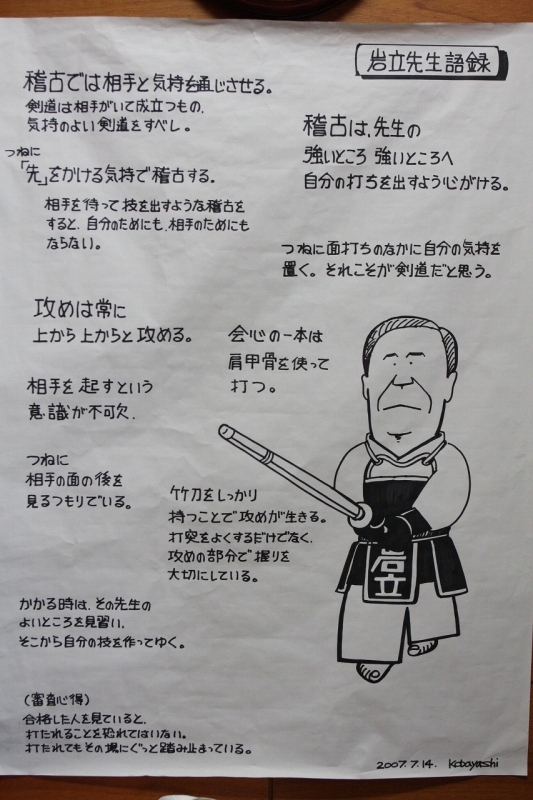 岩立先生語録
稽古では相手と気持を通じさせる。
剣道は相手がいて成立つもの、
気持のよい剣道をすべし。
つねに
「先」をかける気持で稽古する。
相手を待って技を出すような稽古を
すると、自分のためにも、相手のためにも
ならない。
稽古は、先生の
強いところ 強いところへ
自分の打ちを出すよう心がける。
つねに面打ちのなかに自分の気持を
置く。それこそが剣道だと思う。
攻めは常に
上から上からと攻める。
会心の一本は
肩甲骨を使って
打つ。
相手を起すという
意識が不可欠.
つねに
相手の面の後を
見るつもりでいる。
竹刀をしっかり
持つことで攻めが生きる。
打突をよくするだけでなく、
攻めの部分で握りを
大切にしている。
かかる時は、その先生の
よいところを見習い、
そこから自分の技を作ってゆく。
(審査心得)
合格した人を見ていると、
打たれることを恐れてはいない。
打たれてもその場にぐっと踏み止まっている。
岩立
2007.7.14. Kobayashi